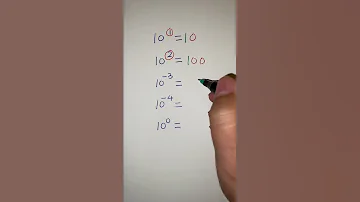 10^① = 10
10^② = 100
10⁻³ =
10⁻⁴ =
10⁰ =